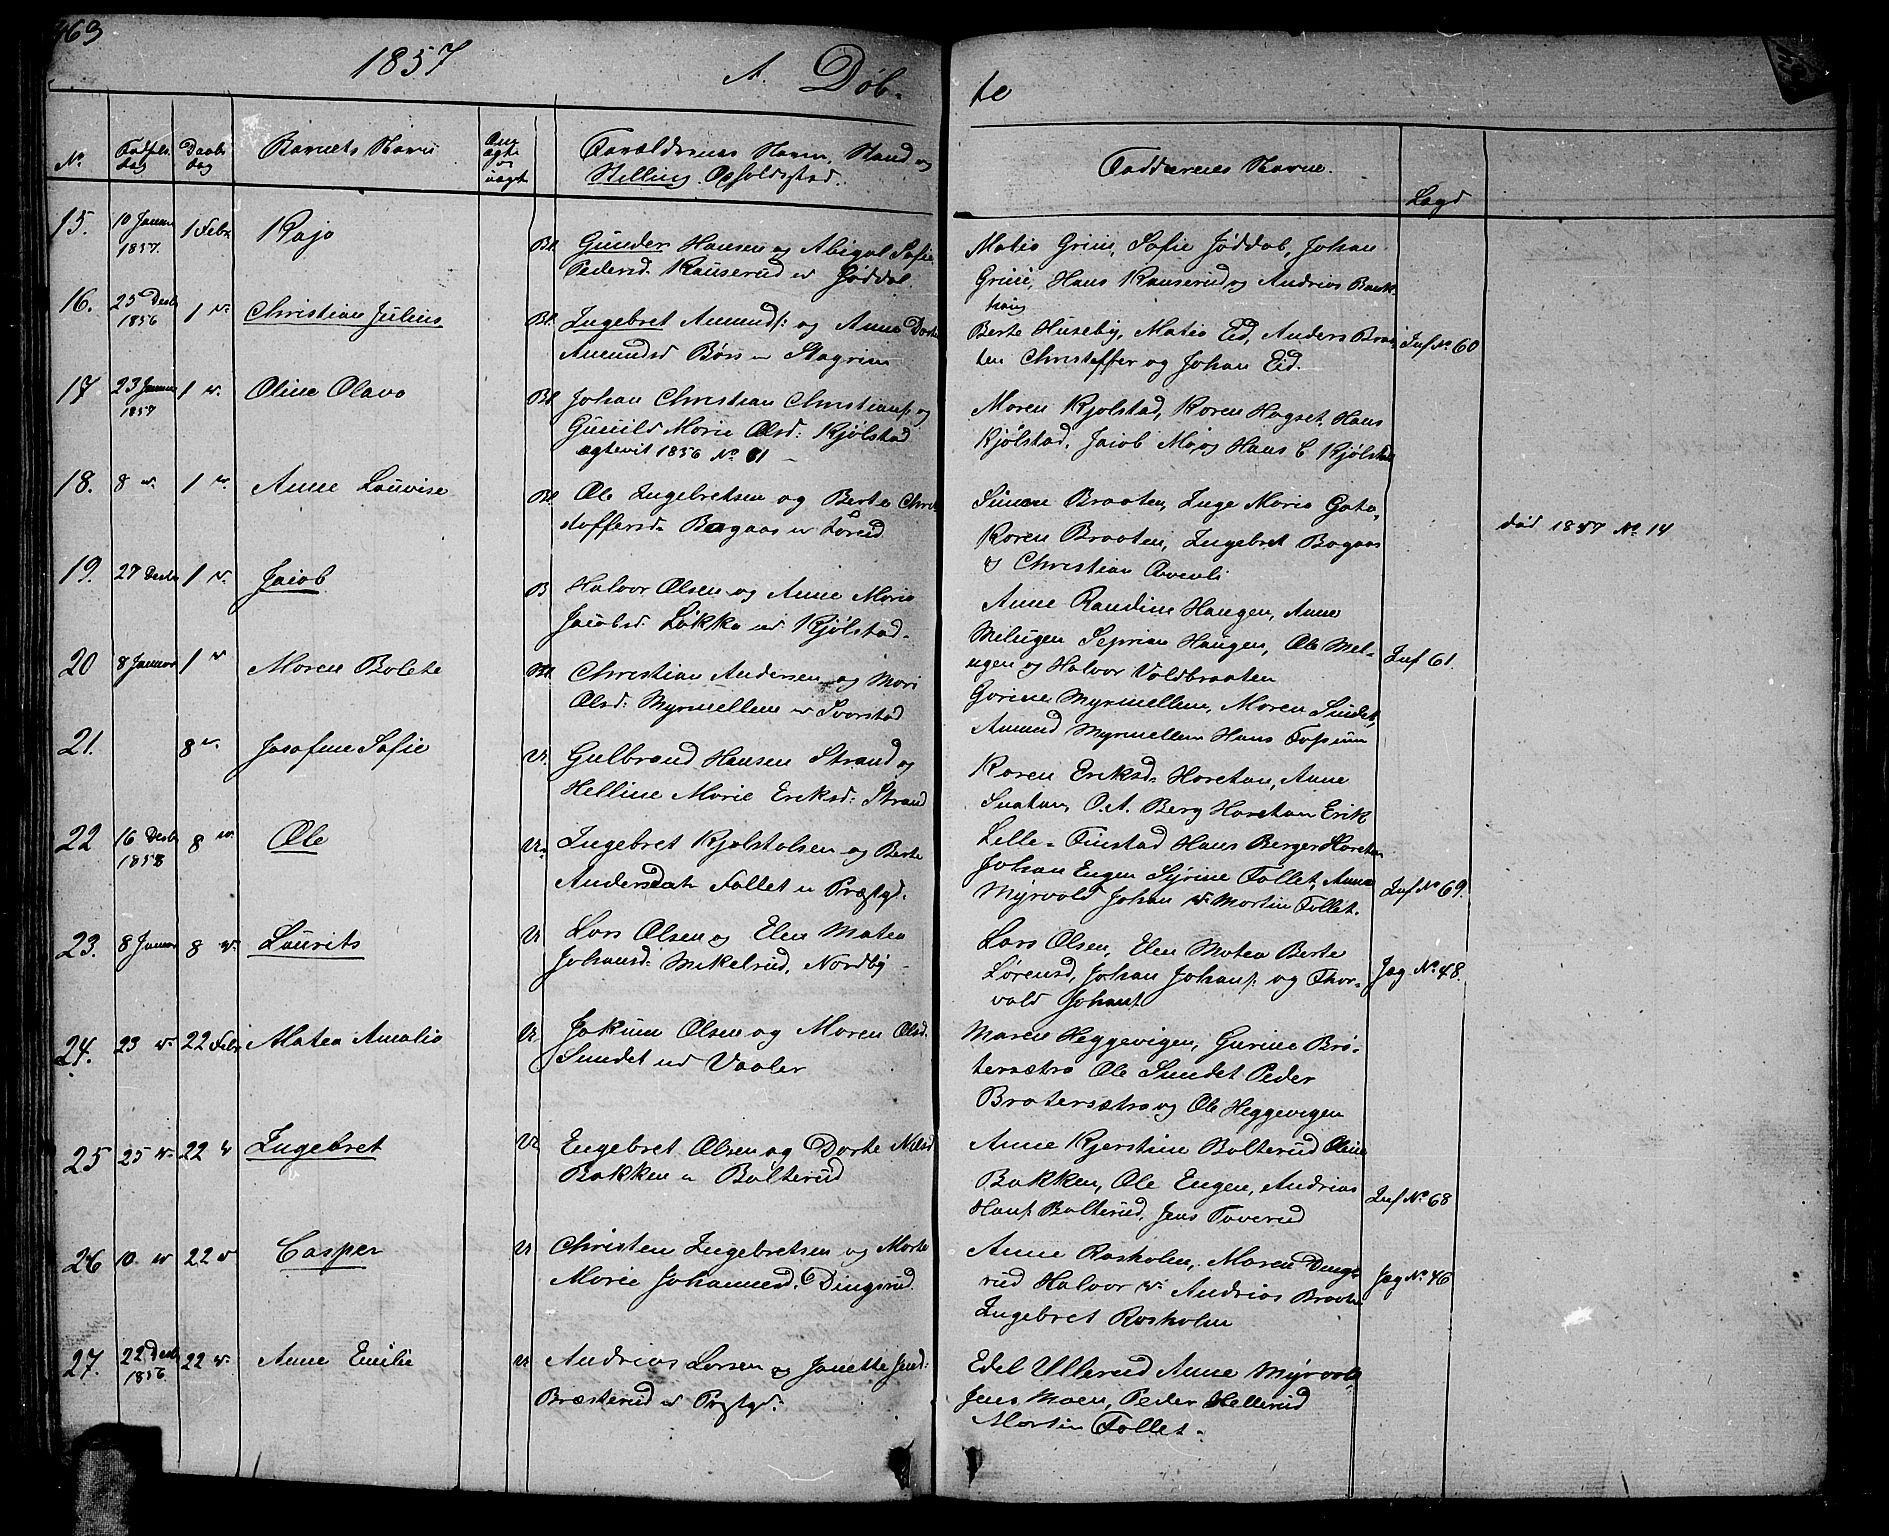 463
1857 A. Døb-
te
No Fødsels dag Daabs dag Barnets Navn Om ægte og uægt Forældrenes Navn, Stand og
Stilling Opholdsstad.
Faddernes Navne. Lagd
15. 10 Januar 1857. 1 Febr Kaja Bl. Gunder Hansen og Abigal Sofie
Pedersd. Kauserud
Matia Grini, Sofie Jøddal, Johan
Grini, Hans Kauserud og Andrias
16. 25 Decbr 1856 1 Christian Julius Bl. Ingebret Amunds: og Anne Dorte
Amundsd Børs
Berte Huseby, Matia Eid, Anders Braa-
ten Christoffer og Johan Eid. Inf No 60
17 23 Januar 1857 1 Oline Olava Bl Johan Christian Christians: og
Gunild Marie Olsd: Kjølstad
ægtevit 1856 No 81
Maren Kjølstad, Karen Hagset, Hans
Kjølstad, Jacob Mo og Hans C Kjølstad
18. 8 1 Anne Lauvise Bl Ole Ingebretsen og Berte Chri-
stoffersd. Bagaas
Simen Braaten, Inge Marie Gata,
Karen Braaten, Ingebret Bagaas
& Christian
død 1857 No 14
19. 27 Decbr 1 Jacob B Halvor Olsen og Anne Marie
Jacobsd. Løkka Kjølstad.
Anne Randine Haugen, Anne
Melugen Haugen, Ole Mel-
ugen og Halvor Voldbraaten Inf 61.
20 8 Januar 1 Maren Bolete Bl. Christian Andersen og Mari
Olsd: Myrmellem
Gorine Myrmellem, Maren Sundet,
Amund Myrmellem Hans Fossum
21. 8 Josefine Sofie U. Gulbrand Hansen Strand og
Helline Marie Eriksd: Strand
Karen Eriksd. Haretan, Anne
O. A. Berg Haretan Erik
Lille-Finstad Hans Berger Haretan
22 16 Decbr 1858 8 Ole U. Ingebret Kjølstolsen og Berte
Andersdatr Follet Præstgd.
Johan Engen Syrine Follet, Anne
Myrvold Johan Martin Follet. Inf No 69.
23. 8 Januar 8 Laurits U Lars Olsen og Elen Matea
Johansd: Mikelrud, Nordby
Lars Olsen, Elen Matea Berte
Lørensd, Johan Johans: og Thor-
vald Johans: Jag No 48.
24. 23 22 Febr Matea Amalia U. Jokum Olsen og Maren Olsd.
Sundet Vaaler
Maren Heggevigen, Gurine Bra-
tersætra Ole Sundet Peder
Bratersætra og Ole Heggevigen
25 25 22 Ingebret U Engebret Olsen og Dorte Nilsd
Bakken Bolterud
Anne Kjerstine Bolterud Oline
Bakken, Ole Engen, Andrias
Hans: Bolterud, Jens Taverud Inf No 68
26 10 22 Casper U Christen Ingebretsen og Marte
Marie Johannesd. Dingsrud.
Anne Rosholm, Maren Dings-
rud Halvor Andrias Braaten
Ingebret Rosholm Jag No 46
27. 22 Decbr 1856. 22 Anne Emilie U Andrias Larsen og Janette
Bræsterud Præstgd:
Edel Ullerud Anne Myrvold
Jens Moen, Peder Hellerud
Martin Follet.